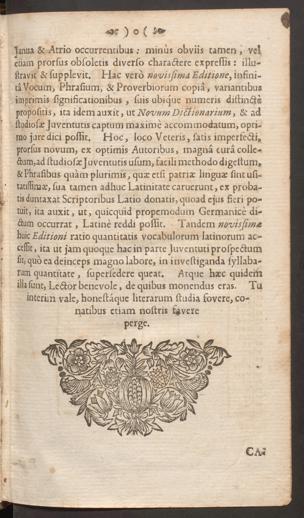 ) o (
Janua & Atrio occurrentibus: minùs obviis tamen, vel
etiam prorsus obsoletis diverso charactere expressis: illu-
stravit & supplevit. Hac verò novissimâ Editione, infini-
tâ Vocum, Phrasium, & Proverbiorum copiâ, variantibus
imprimis significationibus, suis ubique numeris distinctè
propositis, ita idem auxit, ut Novum Dictionarium, & ad
studiosæ Juventutis captum maximè accommodatum, opti-
mo jure dici possit. Hoc, loco Veteris, satis imperfecti,
prorsus novum, ex optimis Autoribus, magnâ curâ colle-
ctum, ad studiosæ Juventutis usum, facili methodo digestum,
& Phrasibus quàm plurimis, quæ etsi patriæ linguæ sint usi-
tatissimæ, sua tamen adhuc Latinitate caruerunt, ex proba-
tis duntaxat Scriptoribus Latio donatis, quoad ejus fieri po-
tuit, ita auxit, ut, quicquid propemodum Germanicè di-
ctum occurrat, Latinè reddi possit. Tandem novissimæ
huic Editioni ratio quantitatis vocabulorum latinorum ac-
cessit, ita ut jam quoque hac in parte Juventuti prospectum
sit, quò ea deinceps magno labore, in investiganda syllaba-
rum quantitate, supersedere queat. Atque hæc quidem
illa sunt, Lector benevole, de quibus monendus eras. Tu
interim vale, honestáque literarum studia fovere, co-
natibus etiam nostris favere
perge.
CA-